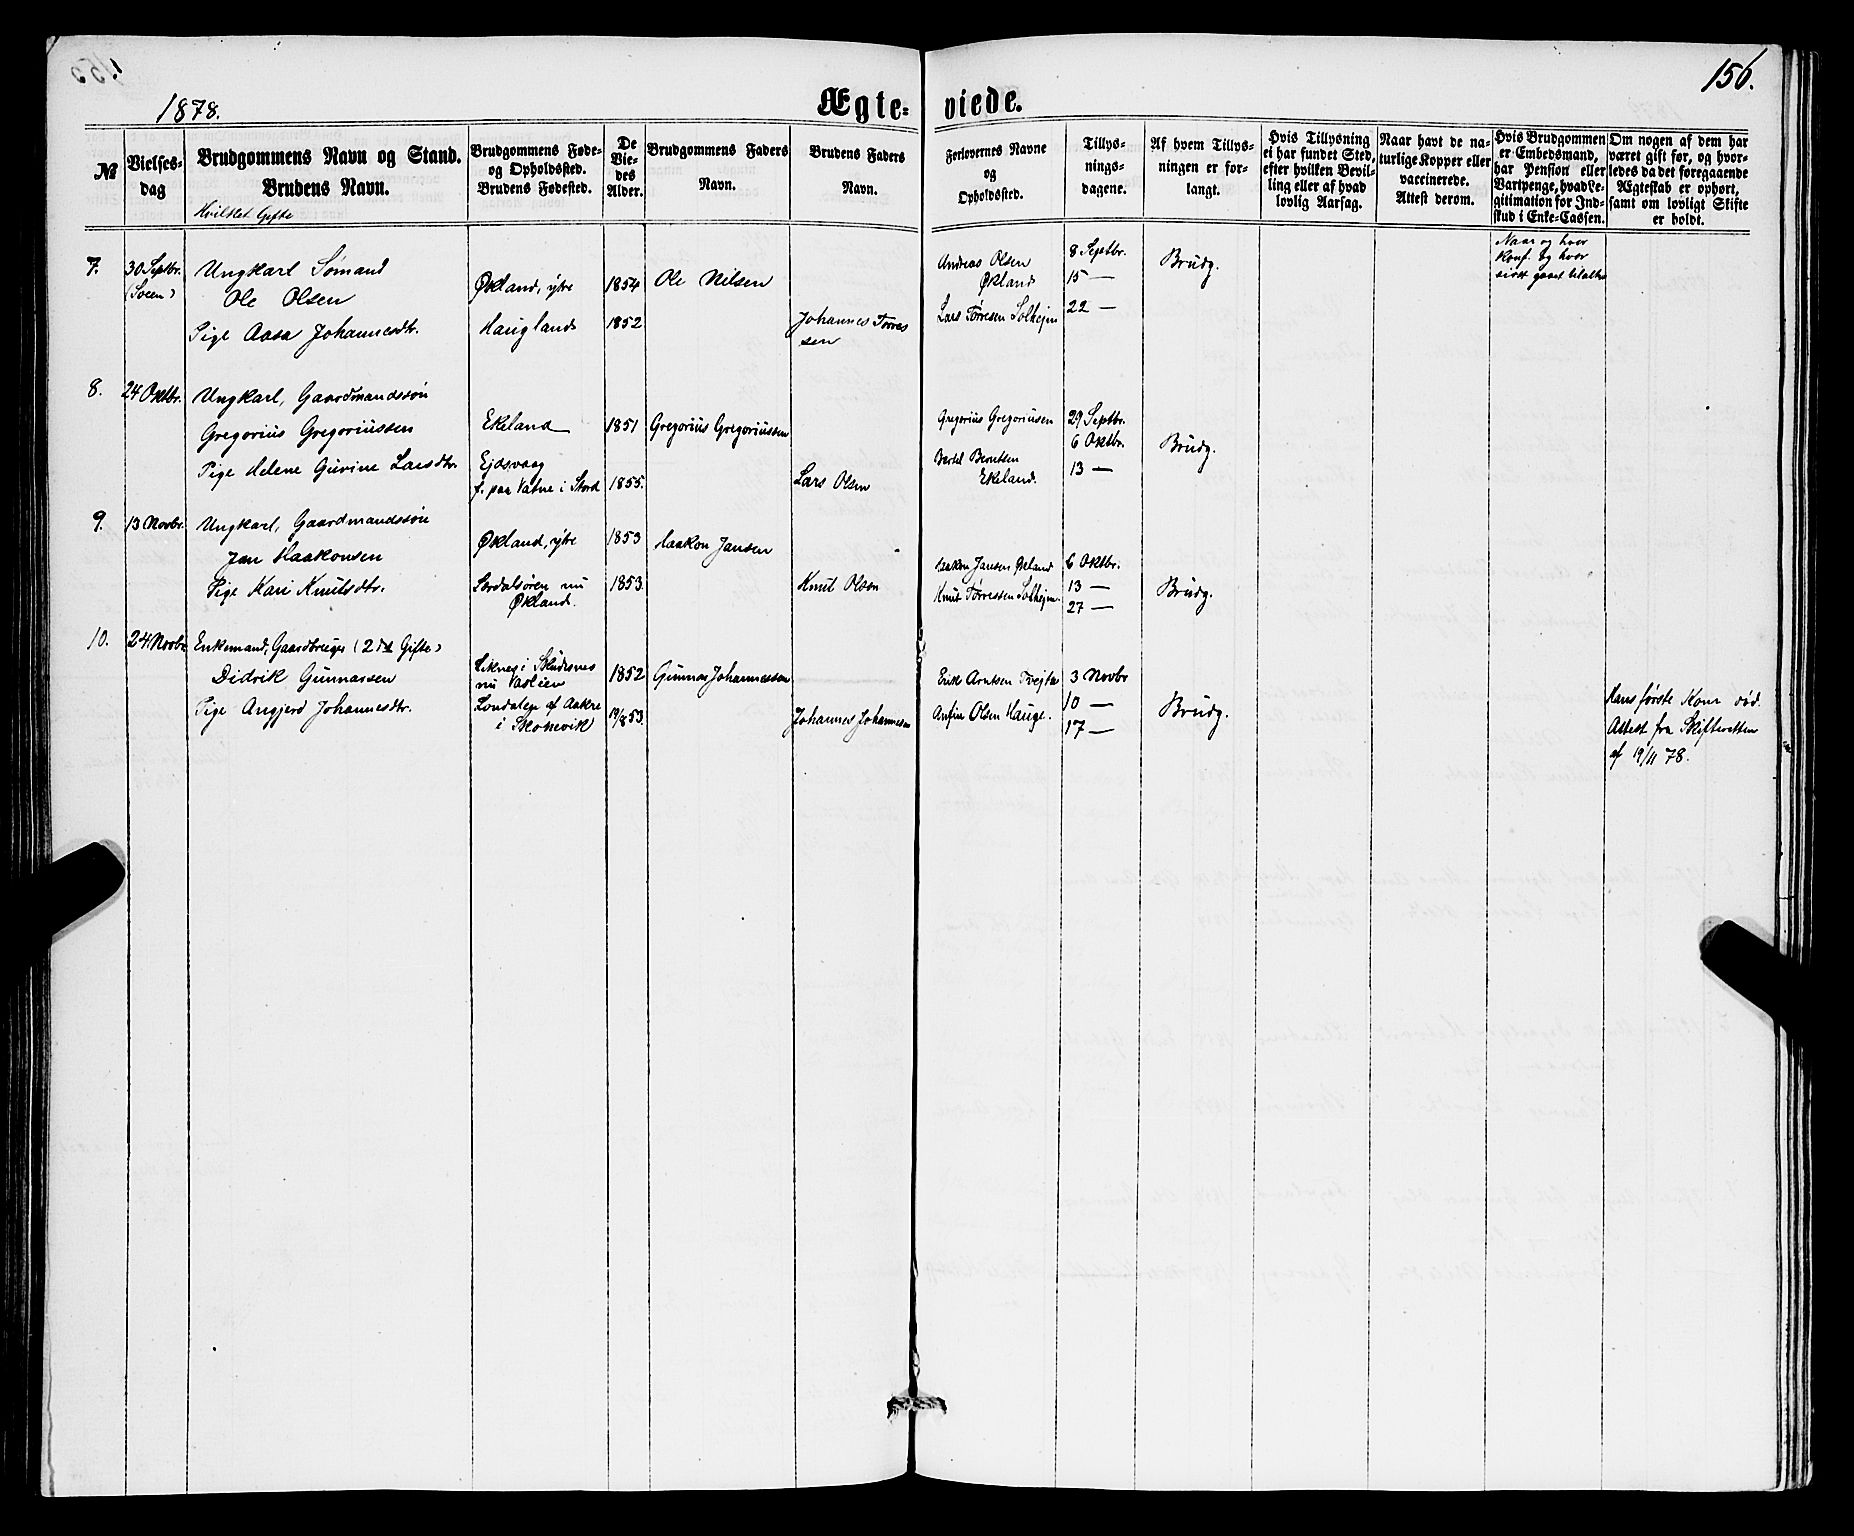 156.
1878.
Ægte= viede.
№
Vielses-
dag
Brudgommens Navn og Stand.
Brudens Navn.
Hvilket Gifte
Brudgommens Føde-
og Opholdssted.
Brudens Fødested.
De
Vie-
des
Alder.
Brudgommens Faders
Navn.
Brudens Faders
Navn.
Forlovernes Navne
og
Opholdssted.
Tillys-
nings-
dagene.
Af hvem Tillys-
ningen er for-
langt.
Hvis Tillysning
ei har fundet Sted,
efter hvilken Bevil-
ling eller af hvad
lovlig Aarsag.
Naar havt de na-
turlige Kopper eller
vaccinerede.
Attest derom.
Hvis Brudgommen
er Embedsmand,
har Pension eller
Vartpenge, hvad Le-
gitimation for Ind-
skud i Enke-Cassen.
Om nogen af dem har
været gift før, og hvor-
ledes da det foregaaende
Ægteskab er ophørt,
samt om lovligt Skifte
er holdt.
Naar og hvor
Konf. og hvor
sidst gaaet til alters
7.
30 Septbr.
Ungkarl Sømand
Ole Olsen
Pige Aasa Johannesdtr.
Økland, ytre
Haugland
1854
1852
Ole Nilsen
Johannes Tørres
sen
Andreas Olsen
Økland
Lars Tørresen Solhejm
8 Septbr.
15 —
22 —
Brudg.
8.
24 Oktbr.
Ungkarl, Gaardmandssøn
Gregorius Gregoriussen
Pige Helene Gurine Larsdtr.
Ekeland
Ejdsvaag
f. paa Vatne i Stord
1851
1855.
Gregorius Gregoriussen
Lars Olsen
Gregorius Gregoriussen
Bertel Berntsen
Ekeland.
29 Septbr.
6 Oktbr.
13 —
Brudg.
9.
13 Novbr.
Ungkarl, Gaardmandssøn
Jan Haakonsen
Pige Kari Knutsdtr.
Økland, ytre
Sørdalsøren nu
Økland.
1853
1853.
Haakon Jansen
Knut Olson
Haakon Jansen Økland
Knut Tørressen Solhejm.
6 Oktbr.
13 —
27 —
Brudg.
10.
24 Novbr
Enkemand, Gaardbruger (2det Gifte)
Didrik Gunnarsen
Pige Angjerd Johannesdtr.
i Skudesnes
nu Vaslien
Londalen af Aakre
i Skonevik
1852
19/8 53.
Gunnar Johannessen
Johannes Johannesen
Erik Arntsen Tvejta
Anfin Olsen Hauge.
3 Novbr
10 —
17 —
Brudg.
Hans første Kone død.
Attest fra Skifteretten
af 19/11 78.